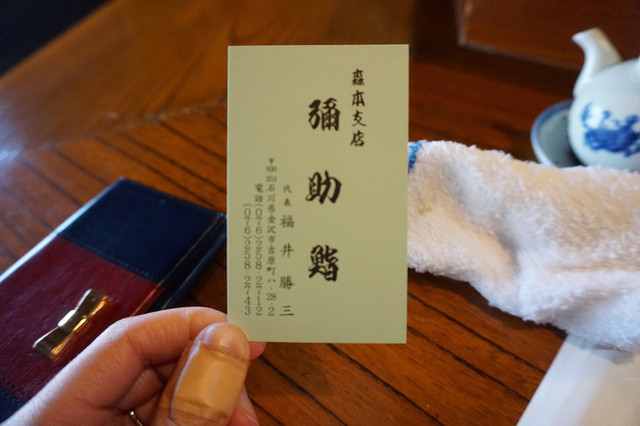 森本支店
彌助鮨
代表 福井勝三
〒920-3104 石川県金沢市吉原町ハ・28・2
電話(076)258・2712
(076)258・2743